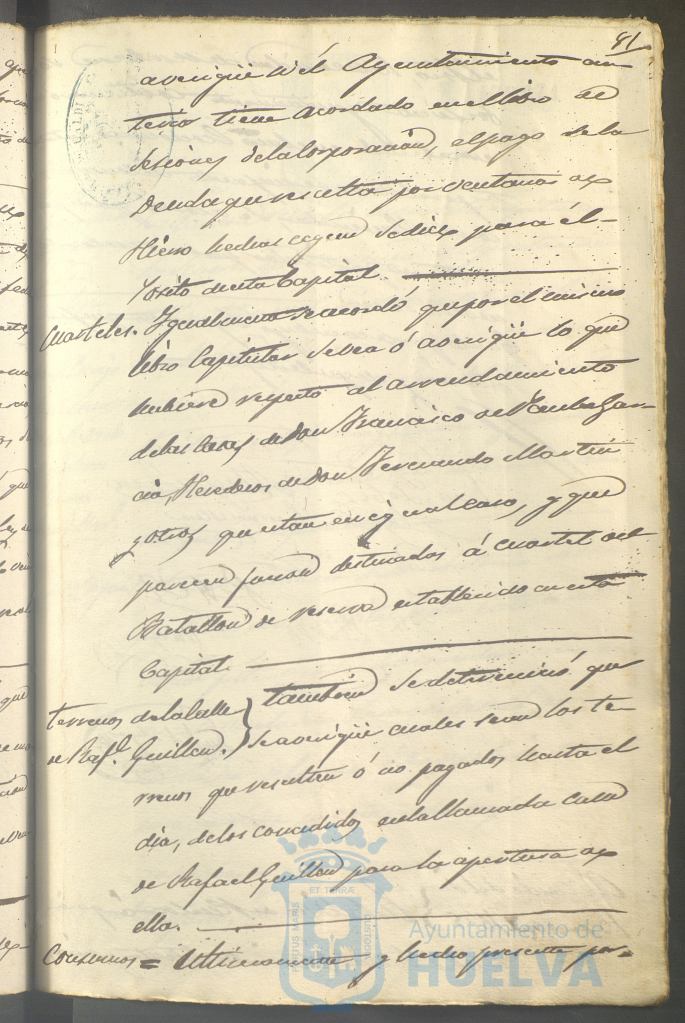 81
averigüe si él Ayuntamiento an-
terior tiene acordado en el libro de
Sesiones de la Corporación, el pago de la
Deuda que resulta por ventanas de
Hierro hechas segun se dice para él
Posito de esta Capital
Cuarteles. Igualmente se acordó que por el mismo
libro Capitular se vea ó averigüe lo que
hubiere respecto al arrendamiento
de las Casas de Don Francisco de Paula Gar-
cia, Herederos de Don Fernando Martin
y otros que estan en igual caso, y que
parecen fueron destinados á cuartel del
Batallon de reserva establecido en esta
Capital.
terrenos de la Calle
de Raf.l Guillen.
tambien se determinó que
se averigüe cuales sean los te-
rrenos que resulten ó no pagados hasta el
dia, de los concedidos en la llamada Calle
de Rafael Guillen para la apertura de
ella.
Consumos = Ultimamente y hecho presente por
ET TERRAE
PORTUS MARIS
CUSTODIA
Ayuntamiento de
HUELVA